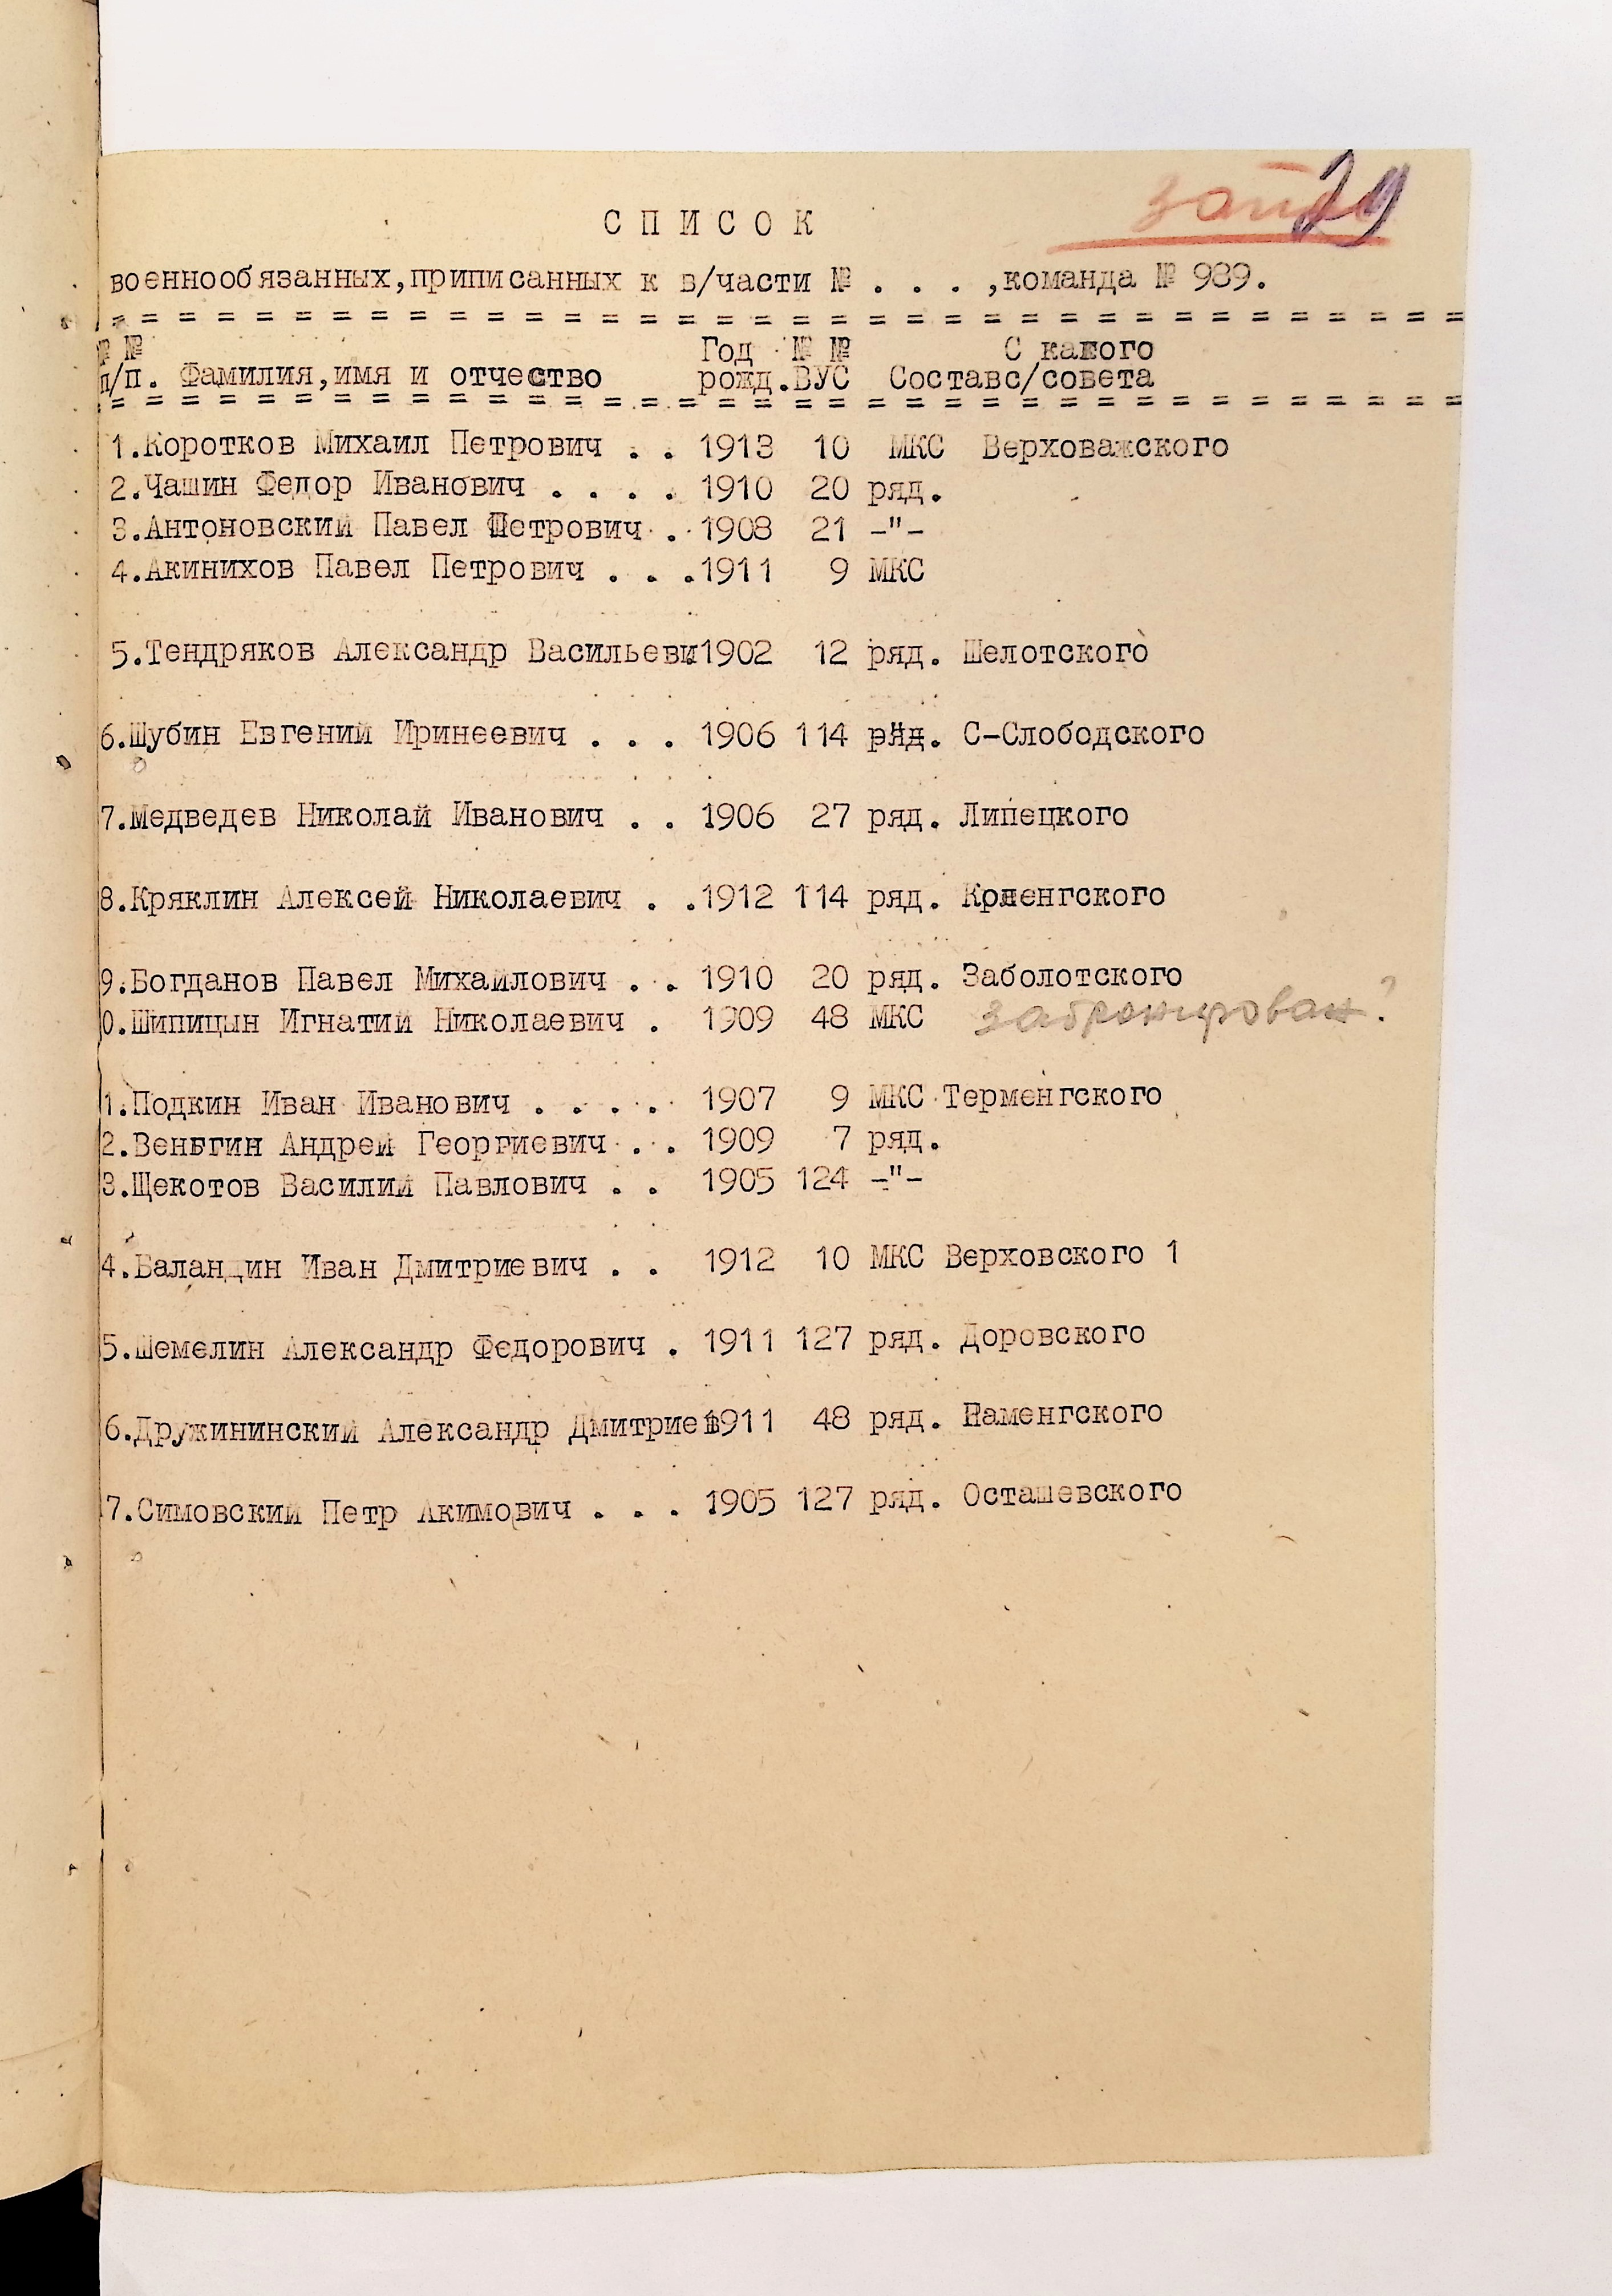 29
С П И С О К
военнообязанных,приписанных к в/части № . . . ,команда № 989.
= = = = = = = = = = = = = = = = = = = = = = = = = = = = = = = = = = = =
№ № Год № № С какого
п/п. Фамилия,имя и отчество рожд.ВУС Составс/совета
= = = = = = = = = = = = = = = = = = = = = = = = = = = = = = = = = = = =
1.Коротков Михаил Петрович . . 1913 10 МКС Верховажского
2.Чашин Федор Иванович . . . . 1910 20 ряд.
3.Антоновский Павел Петрович . . 1908 21 -"-
4.Акинихов Павел Петрович . . .1911 9 МКС
5.Тендряков Александр Васильеви1902 12 ряд. Шелотского
6.Шубин Евгений Иринеевич . . . 1906 114 ряд. С-Слободского
7.Медведев Николай Иванович . . 1906 27 ряд. Липецкого
8.Кряклин Алексей Николаевич . .1912 114 ряд. Коленгского
9.Богданов Павел Михайлович . . 1910 20 ряд. Заболотского
0.Шипицын Игнатий Николаевич . 1909 48 МКС забронирован?
1.Подкин Иван Иванович . . . . 1907 9 МКС Терменгского
2.Веньгин Андрей Георгиевич . . 1909 7 ряд.
3.Щекотов Василий Павлович . . 1905 124 -"-
4.Баландин Иван Дмитриевич . . 1912 10 МКС Верховского 1
5.Шемелин Александр Федорович . 1911 127 ряд. Доровского
6.Дружининский Александр Дмитриев1911 48 ряд. Наменгского
7.Симовский Петр Акимович . . . 1905 127 ряд. Осташевского